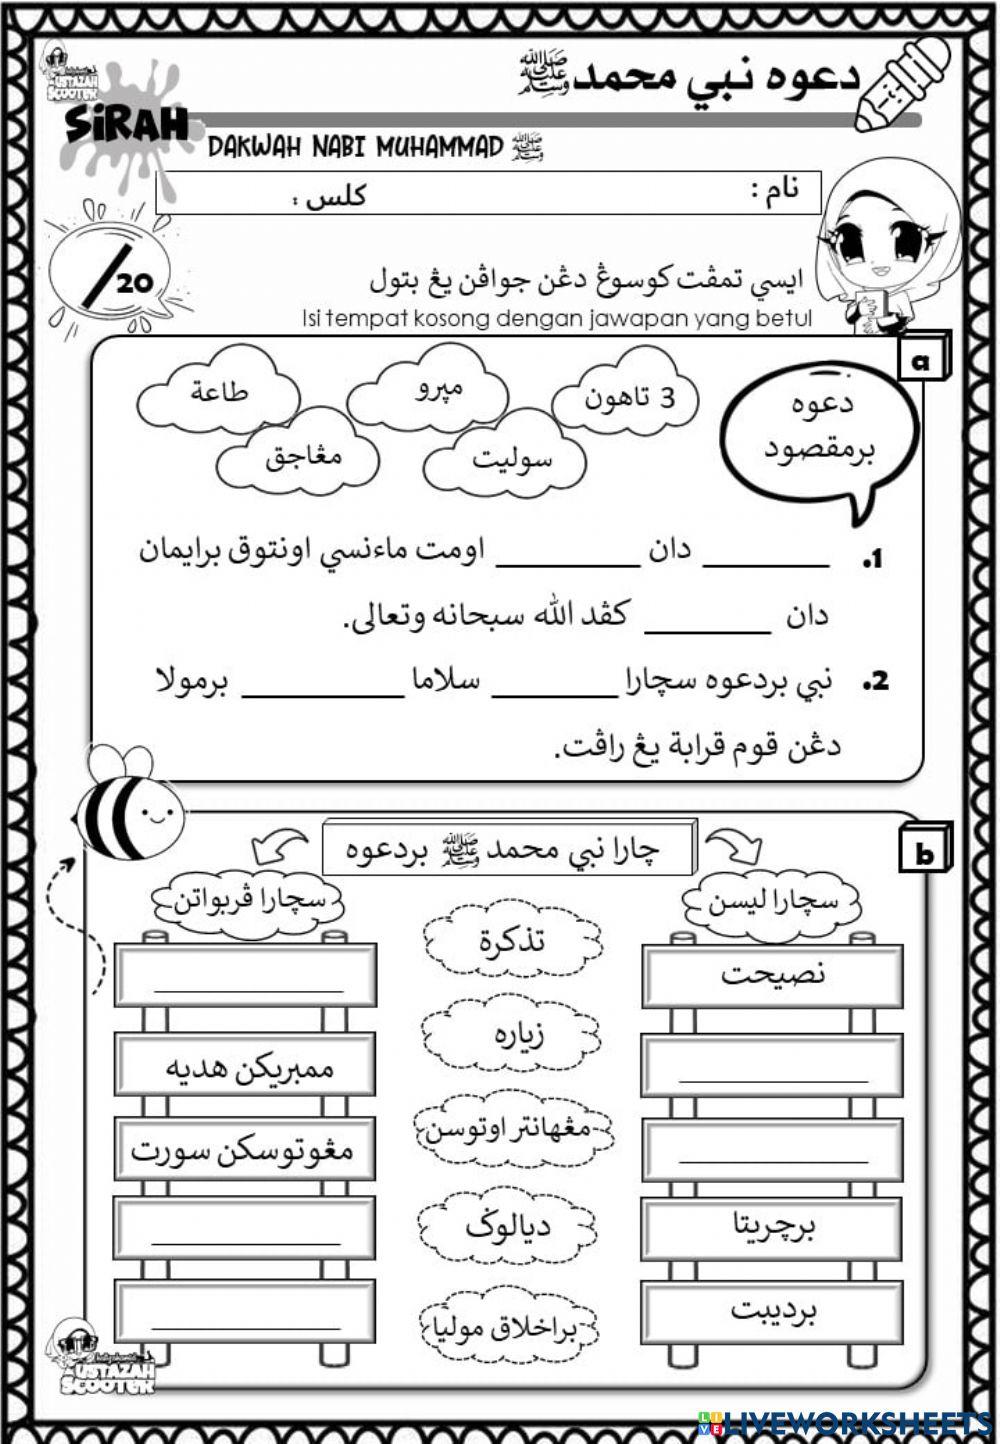 دعوه نبي محمد ﷺ
USTAZAH
SCOOTER
SiRAH
DAKWAH NABI MUHAMMAD ﷺ
نام : كلس :
20
ايسي تمڤت كوسوڠ دڠن جواڤن يڠ بتول
Isi tempat kosong dengan jawapan yang betul
a
دعوه
برمقصود
3 تاهون
مڽرو
طاعة
سوليت
مڠاجق
1. ________ دان ________ اومت ماءنسي اونتوق برايمان
دان ________ كڤد الله سبحانه وتعالى.
2. نبي بردعوه سچارا ________ سلاما ________ برمولا
دڠن قوم قرابة يڠ راڤت.
b
چارا نبي محمد ﷺ بردعوه
سچارا ليسن
نصيحت
________
________
برچريتا
برديبت
تذكرة
زياره
مڠهانتر اوتوسن
ديالوݢ
براخلاق موليا
سچارا ڤربواتن
________
ممبريكن هديه
مڠوتوسكن سورت
________
________
USTAZAH
SCOOTER
LIVEWORKSHEETS